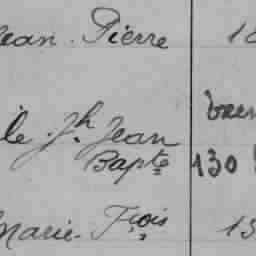 Jean. Pierre 18
ile. Jh. Jean
Bapte 130
Marie-Frçois 13